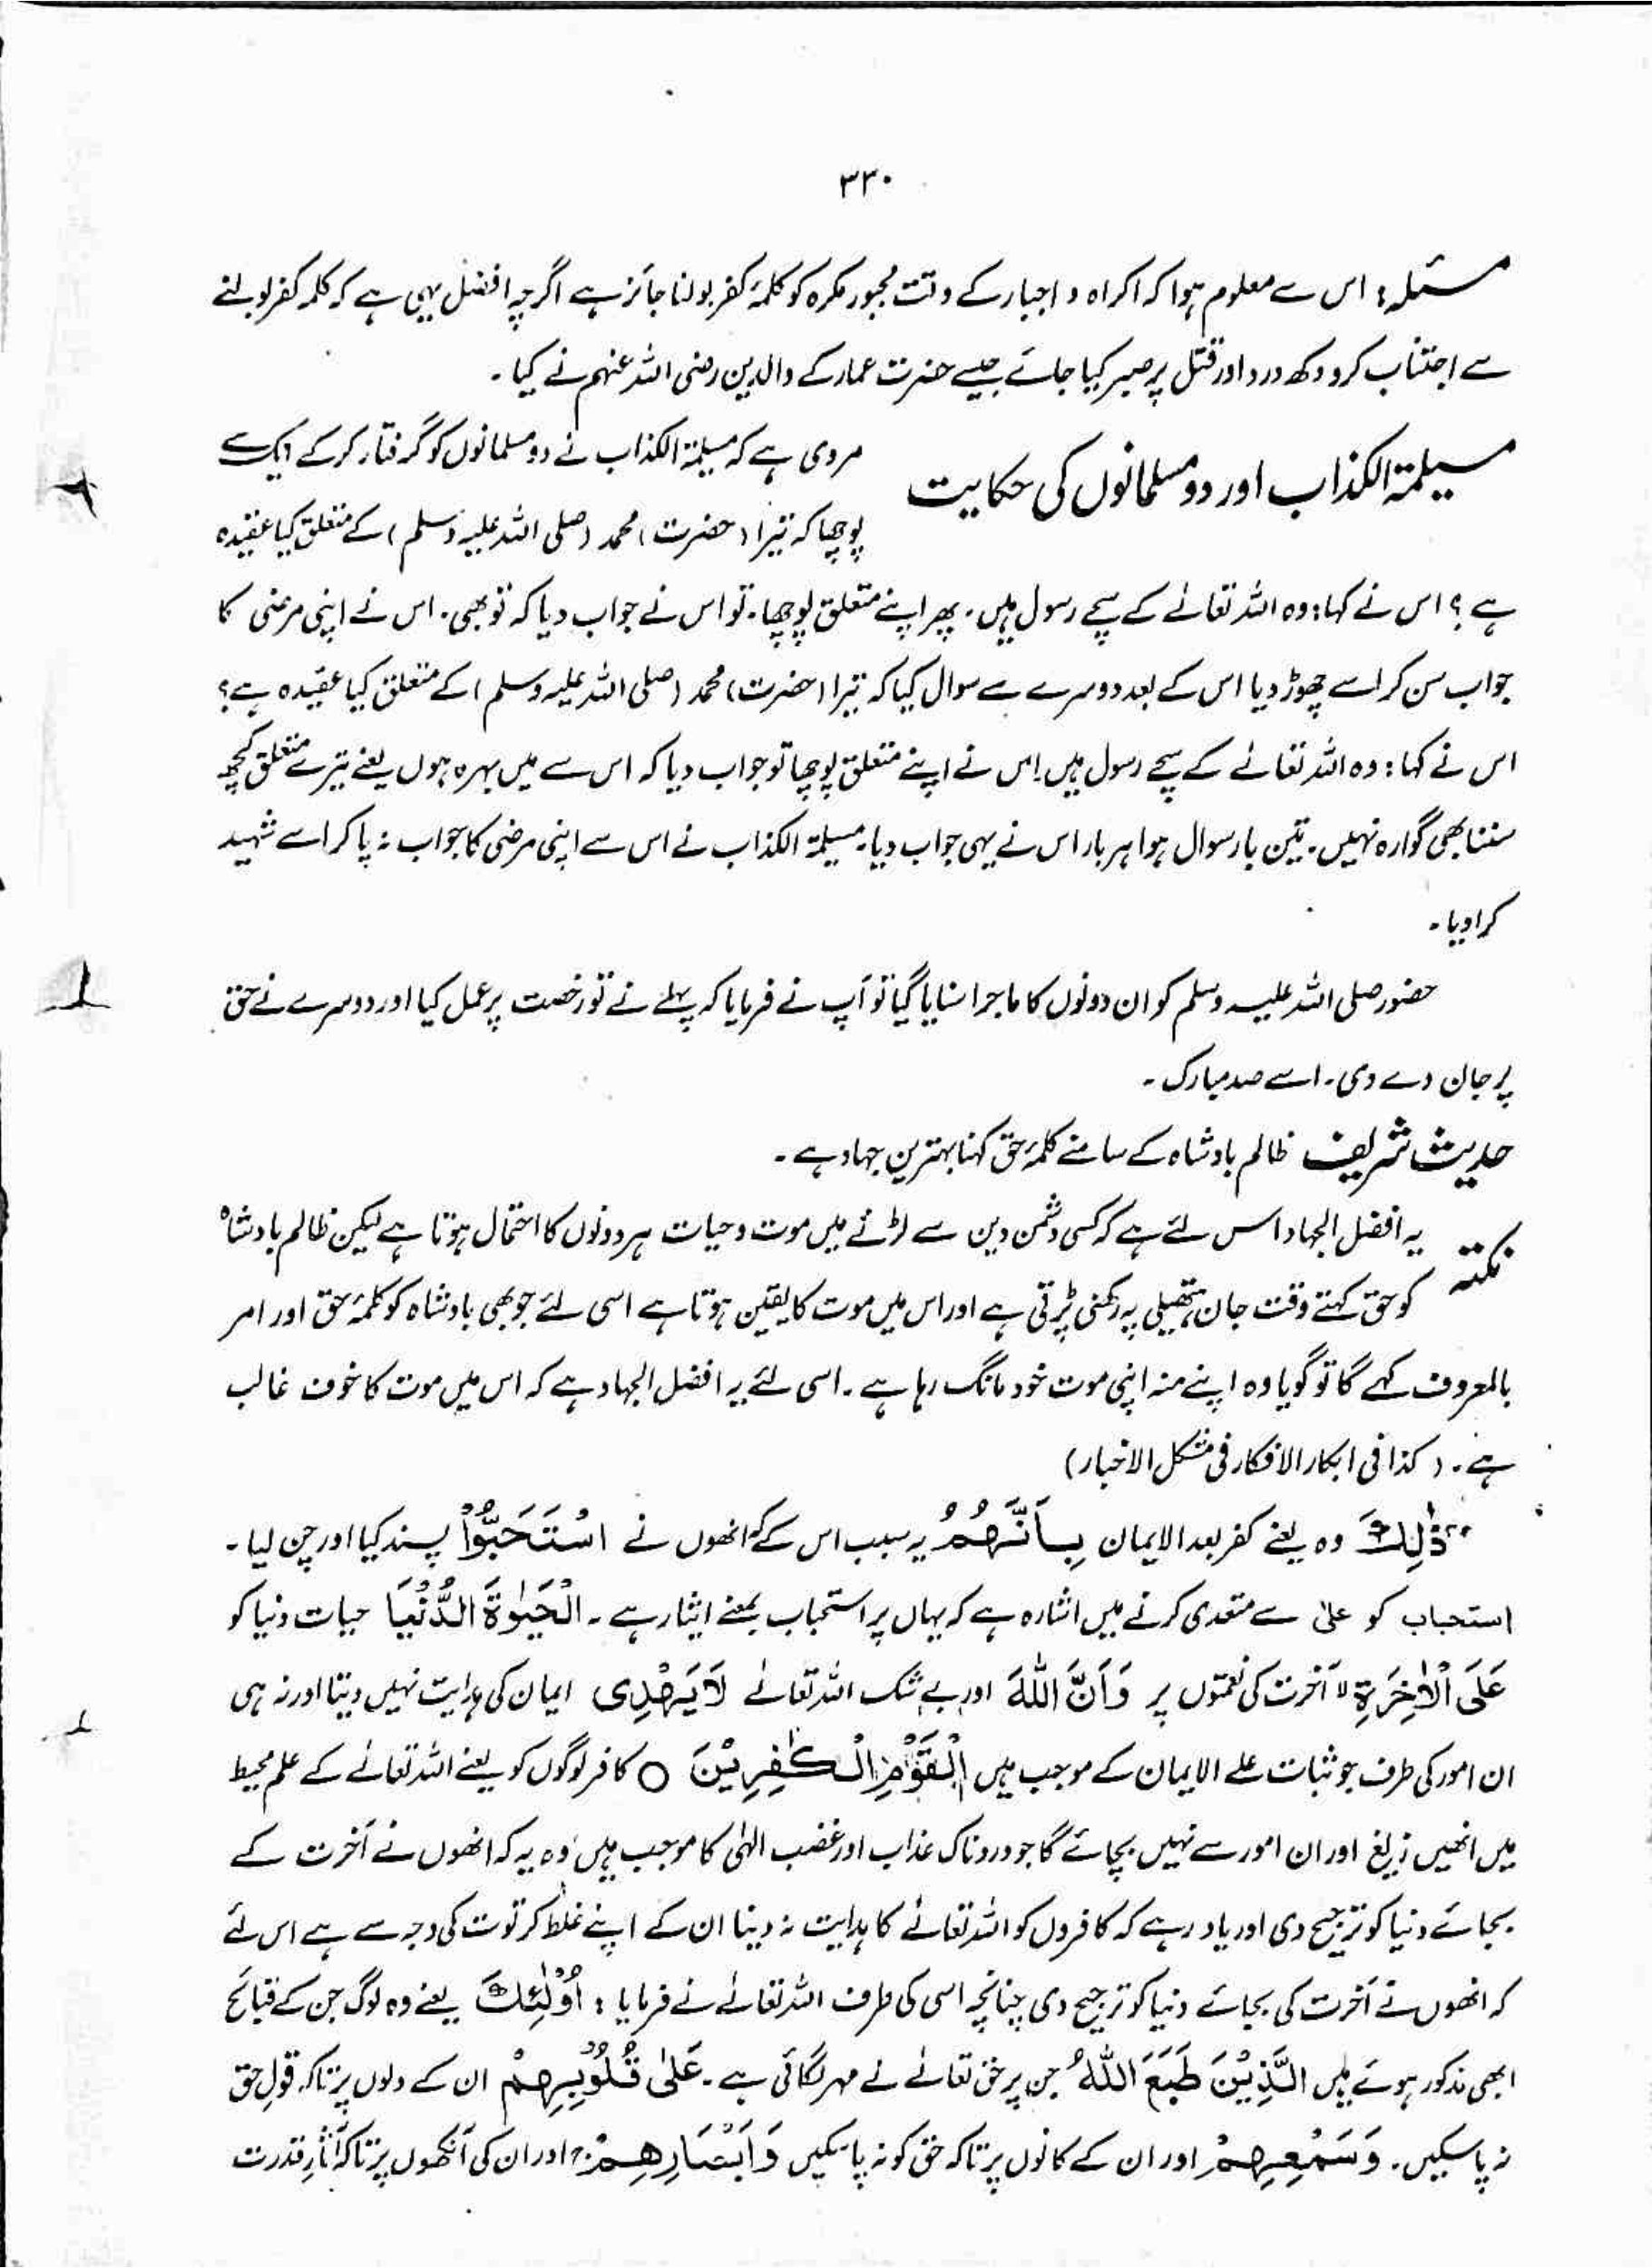 ۳۳۰
مسئلہ: اس سے معلوم ہوا کہ اکراہ و اجبار کے وقت مجبور مکرہ کو کلمۂ کفر بولنا جائز ہے اگرچہ افضل یہی ہے کہ کلمہ کفر بولنے
سے اجتناب کرو دکھ درد اور قتل پر صبر کیا جائے جیسے حضرت عمار کے والدین رضی اللہ عنہم نے کیا۔
مسیلمۃ الکذاب اور دو مسلمانوں کی حکایت
مروی ہے کہ مسیلمۃ الکذاب نے دو مسلمانوں کو گرفتار کر کے ایک سے
پوچھا کہ تیرا (حضرت) محمد (صلی اللہ علیہ وسلم) کے متعلق کیا عقیدہ
ہے؟ اس نے کہا: وہ اللہ تعالےٰ کے سچے رسول ہیں۔ پھر اپنے متعلق پوچھا۔ تو اس نے جواب دیا کہ تو بھی۔ اس نے اپنی مرضی کا
جواب سن کر اسے چھوڑ دیا اس کے بعد دوسرے سے سوال کیا کہ تیرا (حضرت) محمد (صلی اللہ علیہ وسلم) کے متعلق کیا عقیدہ ہے؟
اس نے کہا: وہ اللہ تعالےٰ کے سچے رسول ہیں۔ اس نے اپنے متعلق پوچھا تو جواب دیا کہ اس سے میں بہرہ ہوں یعنے تیرے متعلق کچھ
سننا بھی گوارہ نہیں۔ تین بار سوال ہوا ہر بار اس نے یہی جواب دیا۔ مسیلمۃ الکذاب نے اس سے اپنی مرضی کا جواب نہ پا کر اسے شہید
کرا دیا۔
حضور صلی اللہ علیہ وسلم کو ان دونوں کا ماجرا سنایا گیا تو آپ نے فرمایا کہ پہلے نے تو رخصت پر عمل کیا اور دوسرے نے حق
پر جان دے دی۔ اسے صد مبارک۔
حدیث شریف ظالم بادشاہ کے سامنے کلمۂ حق کہنا بہترین جہاد ہے۔
نکتہ یہ افضل الجہاد اس لئے ہے کہ کسی دشمن دین سے لڑنے میں موت و حیات ہر دونوں کا احتمال ہوتا ہے لیکن ظالم بادشاہ
کو حق کہتے وقت جان ہتھیلی پہ رکھنی پڑتی ہے اور اس میں موت کا یقین ہوتا ہے اسی لئے جو بھی بادشاہ کو کلمۂ حق اور امر
بالمعروف کہے گا تو گویا وہ اپنے منہ اپنی موت خود مانگ رہا ہے۔ اسی لئے یہ افضل الجہاد ہے کہ اس میں موت کا خوف غالب
ہے۔ (کذا فی ابکار الافکار فی مشکل الاخبار)
ذٰلِكَ وہ یعنے کفر بعد الایمان بِاَنَّهُمُ بہ سبب اس کے کہ انھوں نے اسْتَحَبُّوا پسند کیا اور چن لیا۔
استحباب کو علیٰ سے متعدی کرنے میں اشارہ ہے کہ یہاں پر استحباب بمعنے ایثار ہے۔ الْحَيٰوةَ الدُّنْيَا حیات دنیا کو
عَلَى الْاٰخِرَةِ لا آخرت کی نعمتوں پر وَاَنَّ اللّٰهَ اور بے شک اللہ تعالےٰ لَا يَهْدِى ایمان کی ہدایت نہیں دیتا اور نہ ہی
ان امور کی طرف جو ثبات علے الایمان کے موجب ہیں الْقَوْمَ الْكٰفِرِيْنَ ○ کافر لوگوں کو یعنے اللہ تعالےٰ کے علم محیط
میں انھیں زیغ اور ان امور سے نہیں بچائے گا جو دردناک عذاب اور غضب الٰہی کا موجب ہیں وہ یہ کہ انھوں نے آخرت کے
بجائے دنیا کو ترجیح دی اور یاد رہے کہ کافروں کو اللہ تعالےٰ کا ہدایت نہ دینا ان کے اپنے غلط کرتوت کی وجہ سے ہے اس لئے
کہ انھوں نے آخرت کی بجائے دنیا کو ترجیح دی چنانچہ اسی کی طرف اللہ تعالےٰ نے فرمایا: اُولٰٓئِكَ یعنے وہ لوگ جن کے قبائح
ابھی مذکور ہوئے ہیں الَّذِيْنَ طَبَعَ اللّٰهُ جن پر حق تعالےٰ نے مہر لگائی ہے۔ عَلٰى قُلُوْبِهِمْ ان کے دلوں پر تاکہ قولِ حق
نہ پا سکیں۔ وَسَمْعِهِمْ اور ان کے کانوں پر تاکہ حق کو نہ پا سکیں وَاَبْصَارِهِمْ ج اور ان کی آنکھوں پر تاکہ آثارِ قدرت